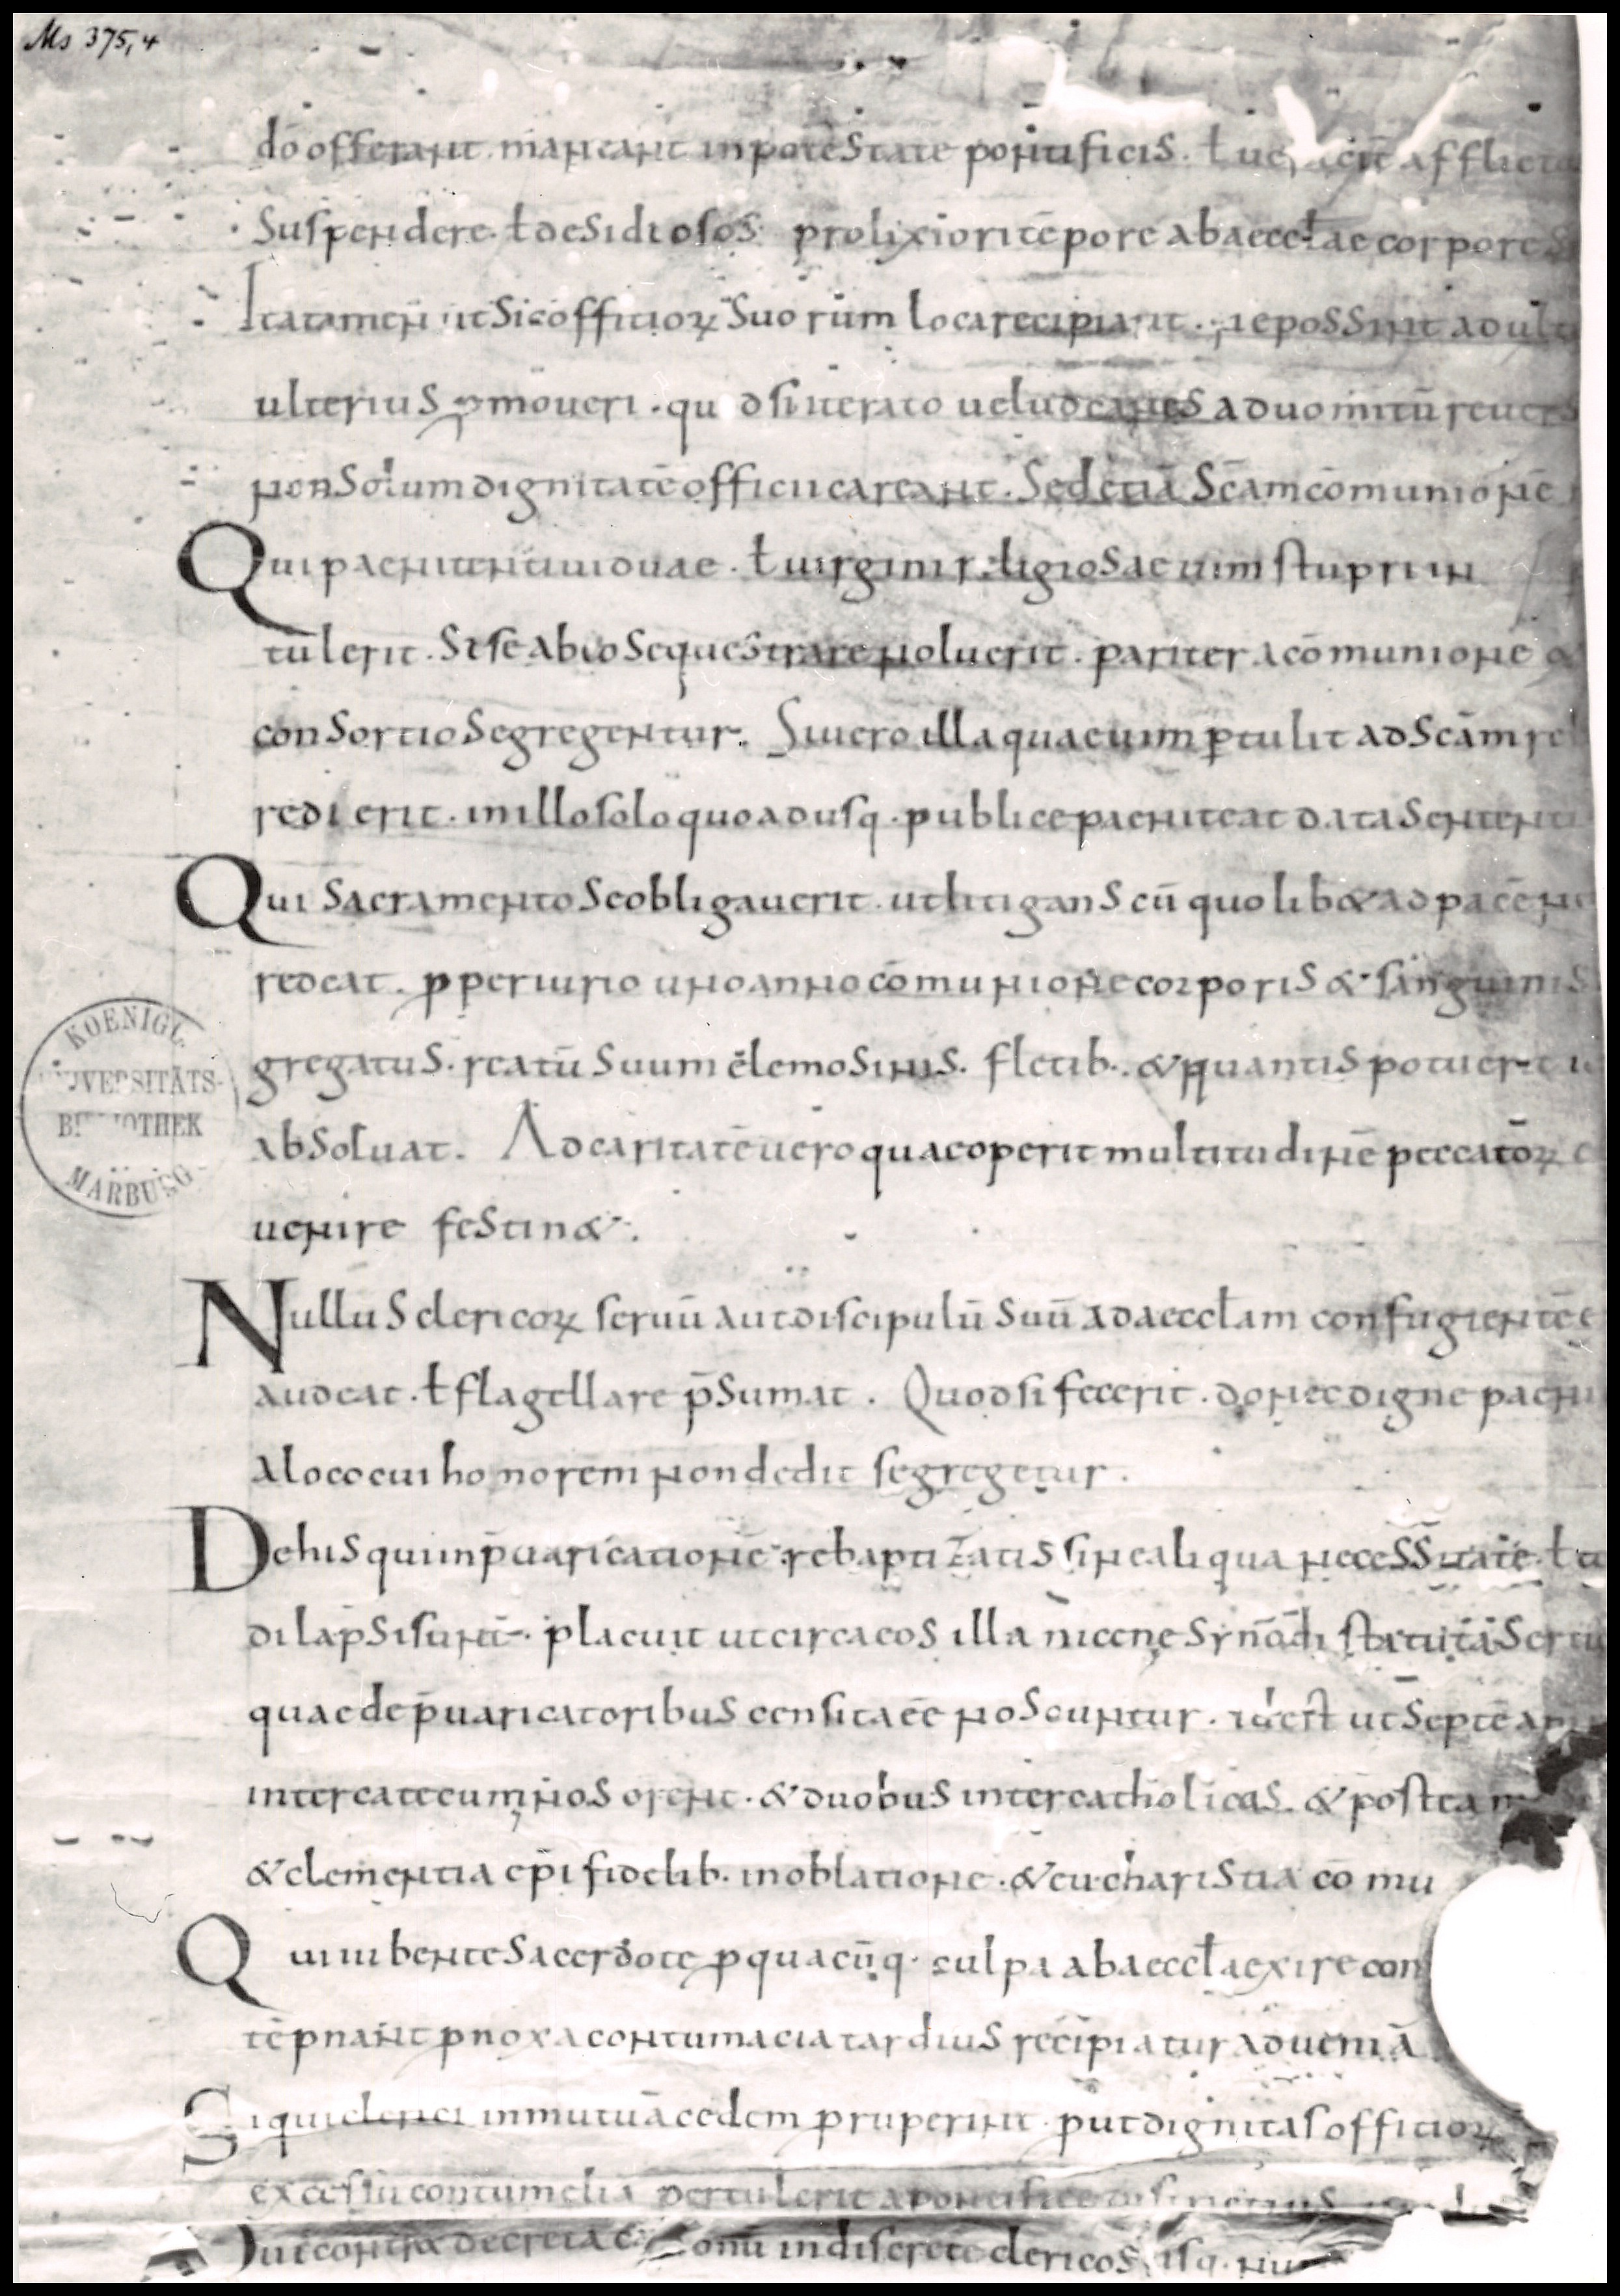 Ms 375,4
do̅ offerant. maneant in potestate pontificis. ł
suspendere. ł desidiosos prolixiori te̅pore ab aeccłae corpore
Ita tamen ut sic officioꝝ suorum loca recipiant. ne possint ad
ulterius ꝓmoueri. qu d si iterato uelud canes ad uomitu̅
non solum dignitate̅ officii careant. Sed etia̅ sc̅am co̅munione̅
Qui paenitenti uiduae. ł uirgini religiosae uim stupri in
tulerit. Si se ab eo sequestrare noluerit. pariter a co̅munione
consortio segregentur. Si uero illa quae uim ꝑtulit ad sc̅am
redierit. in illo solo quoadusq. publice paeniteat data
Qui sacramento se obligauerit. ut litigans cu̅ quolib& ad pace̅
redeat. ꝓ periurio uno anno co̅munione corporis & sanguinis
gregatus. reatu̅ suum elemosinis. fletib. & quantis
absoluat. Ad caritate̅ uero quae operit multitudine̅ peccato̅ꝝ
uenire festin&.
KOENIGL. UNIVERSITÄTS-BIBLIOTHEK MARBURG
Nullus clericoꝝ seruu̅ aut discipulu̅ suu̅ ad aeccłam
audeat. ł flagellare p̅sumat. Quod si fecerit. donec digne
a loco cui honorem non dedit segregetur.
De his qui in p̅uaricatione rebaptizatis sine aliqua necessitate. ł
dilapsi sunt. placuit ut circa eos illa nicene synodi statuta
quae de p̅uaricatoribus censita ee̅ noscuntur. id est ut septe̅
inter catecuminos orent. & duobus inter catholicos. & postea
& clementia ep̅i fidelib. in oblatione. & eucharistia co̅mu
Qui iubente sacerdote ꝓ quacu̅q. culpa ab aeccła exire con
te̅pnant ꝓ noxa contumacia tardius recipiatur ad uenia̅
Si qui clerici in mutua̅ cedem ꝓruperint. put dignitas officioꝝ
excessu contumelia pertulerit a pontifice districtius
contra decreta indiscrete clericos